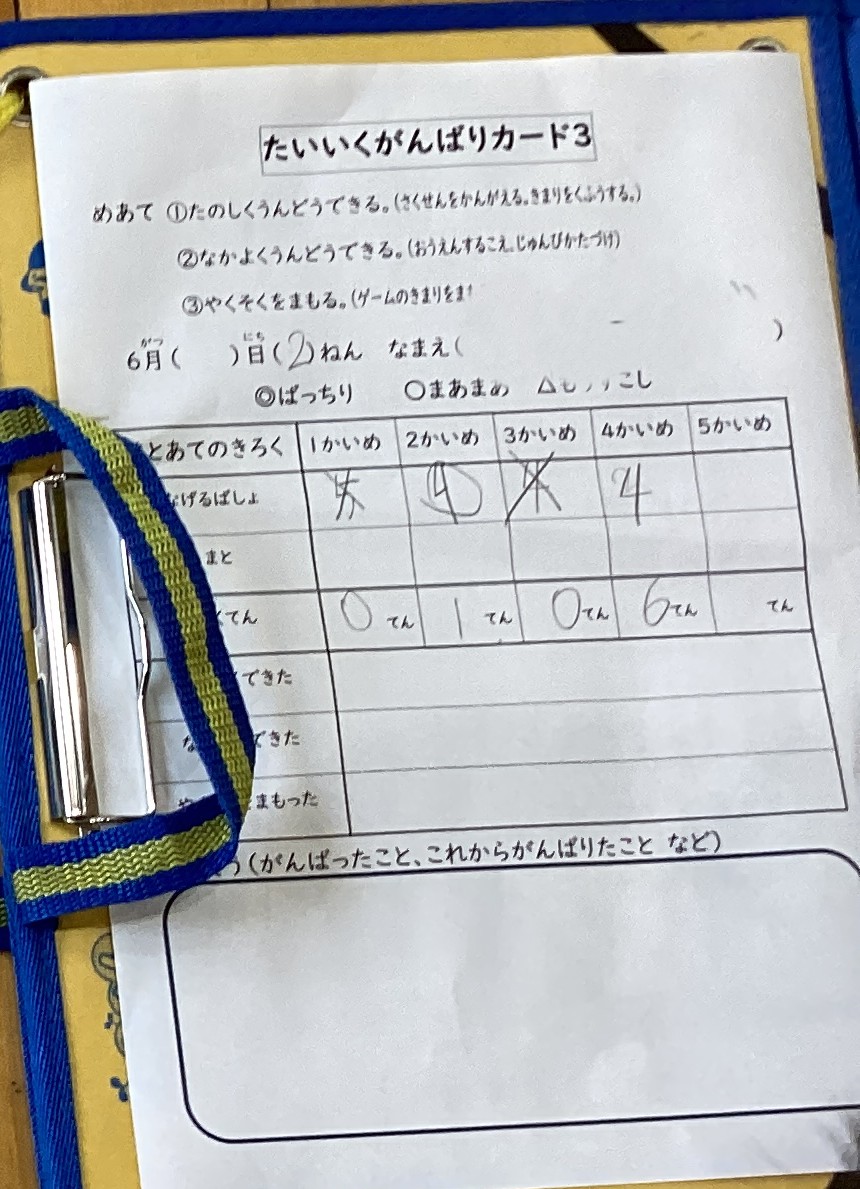 たいいくがんばりカード3
めあて ①たのしくうんどうできる。(さくせんをかんがえる。きまりをくふうする。)
②なかよくうんどうできる。(おうえんするこえ、じゅんびかたづけ)
③やくそくをまもる。(ゲームのきまりをま
6月(がつ) ( )日(にち) (2)ねん なまえ( )
◎ばっちり ○まあまあ △も こし
とあてのきろく 1かいめ 2かいめ 3かいめ 4かいめ 5かいめ
なげるばしょ 4 4 4 4
まと
てん 0てん 1てん 0てん 6てん てん
できた
な できた
や まもった
う(がんばったこと、これからがんばりたこと など)